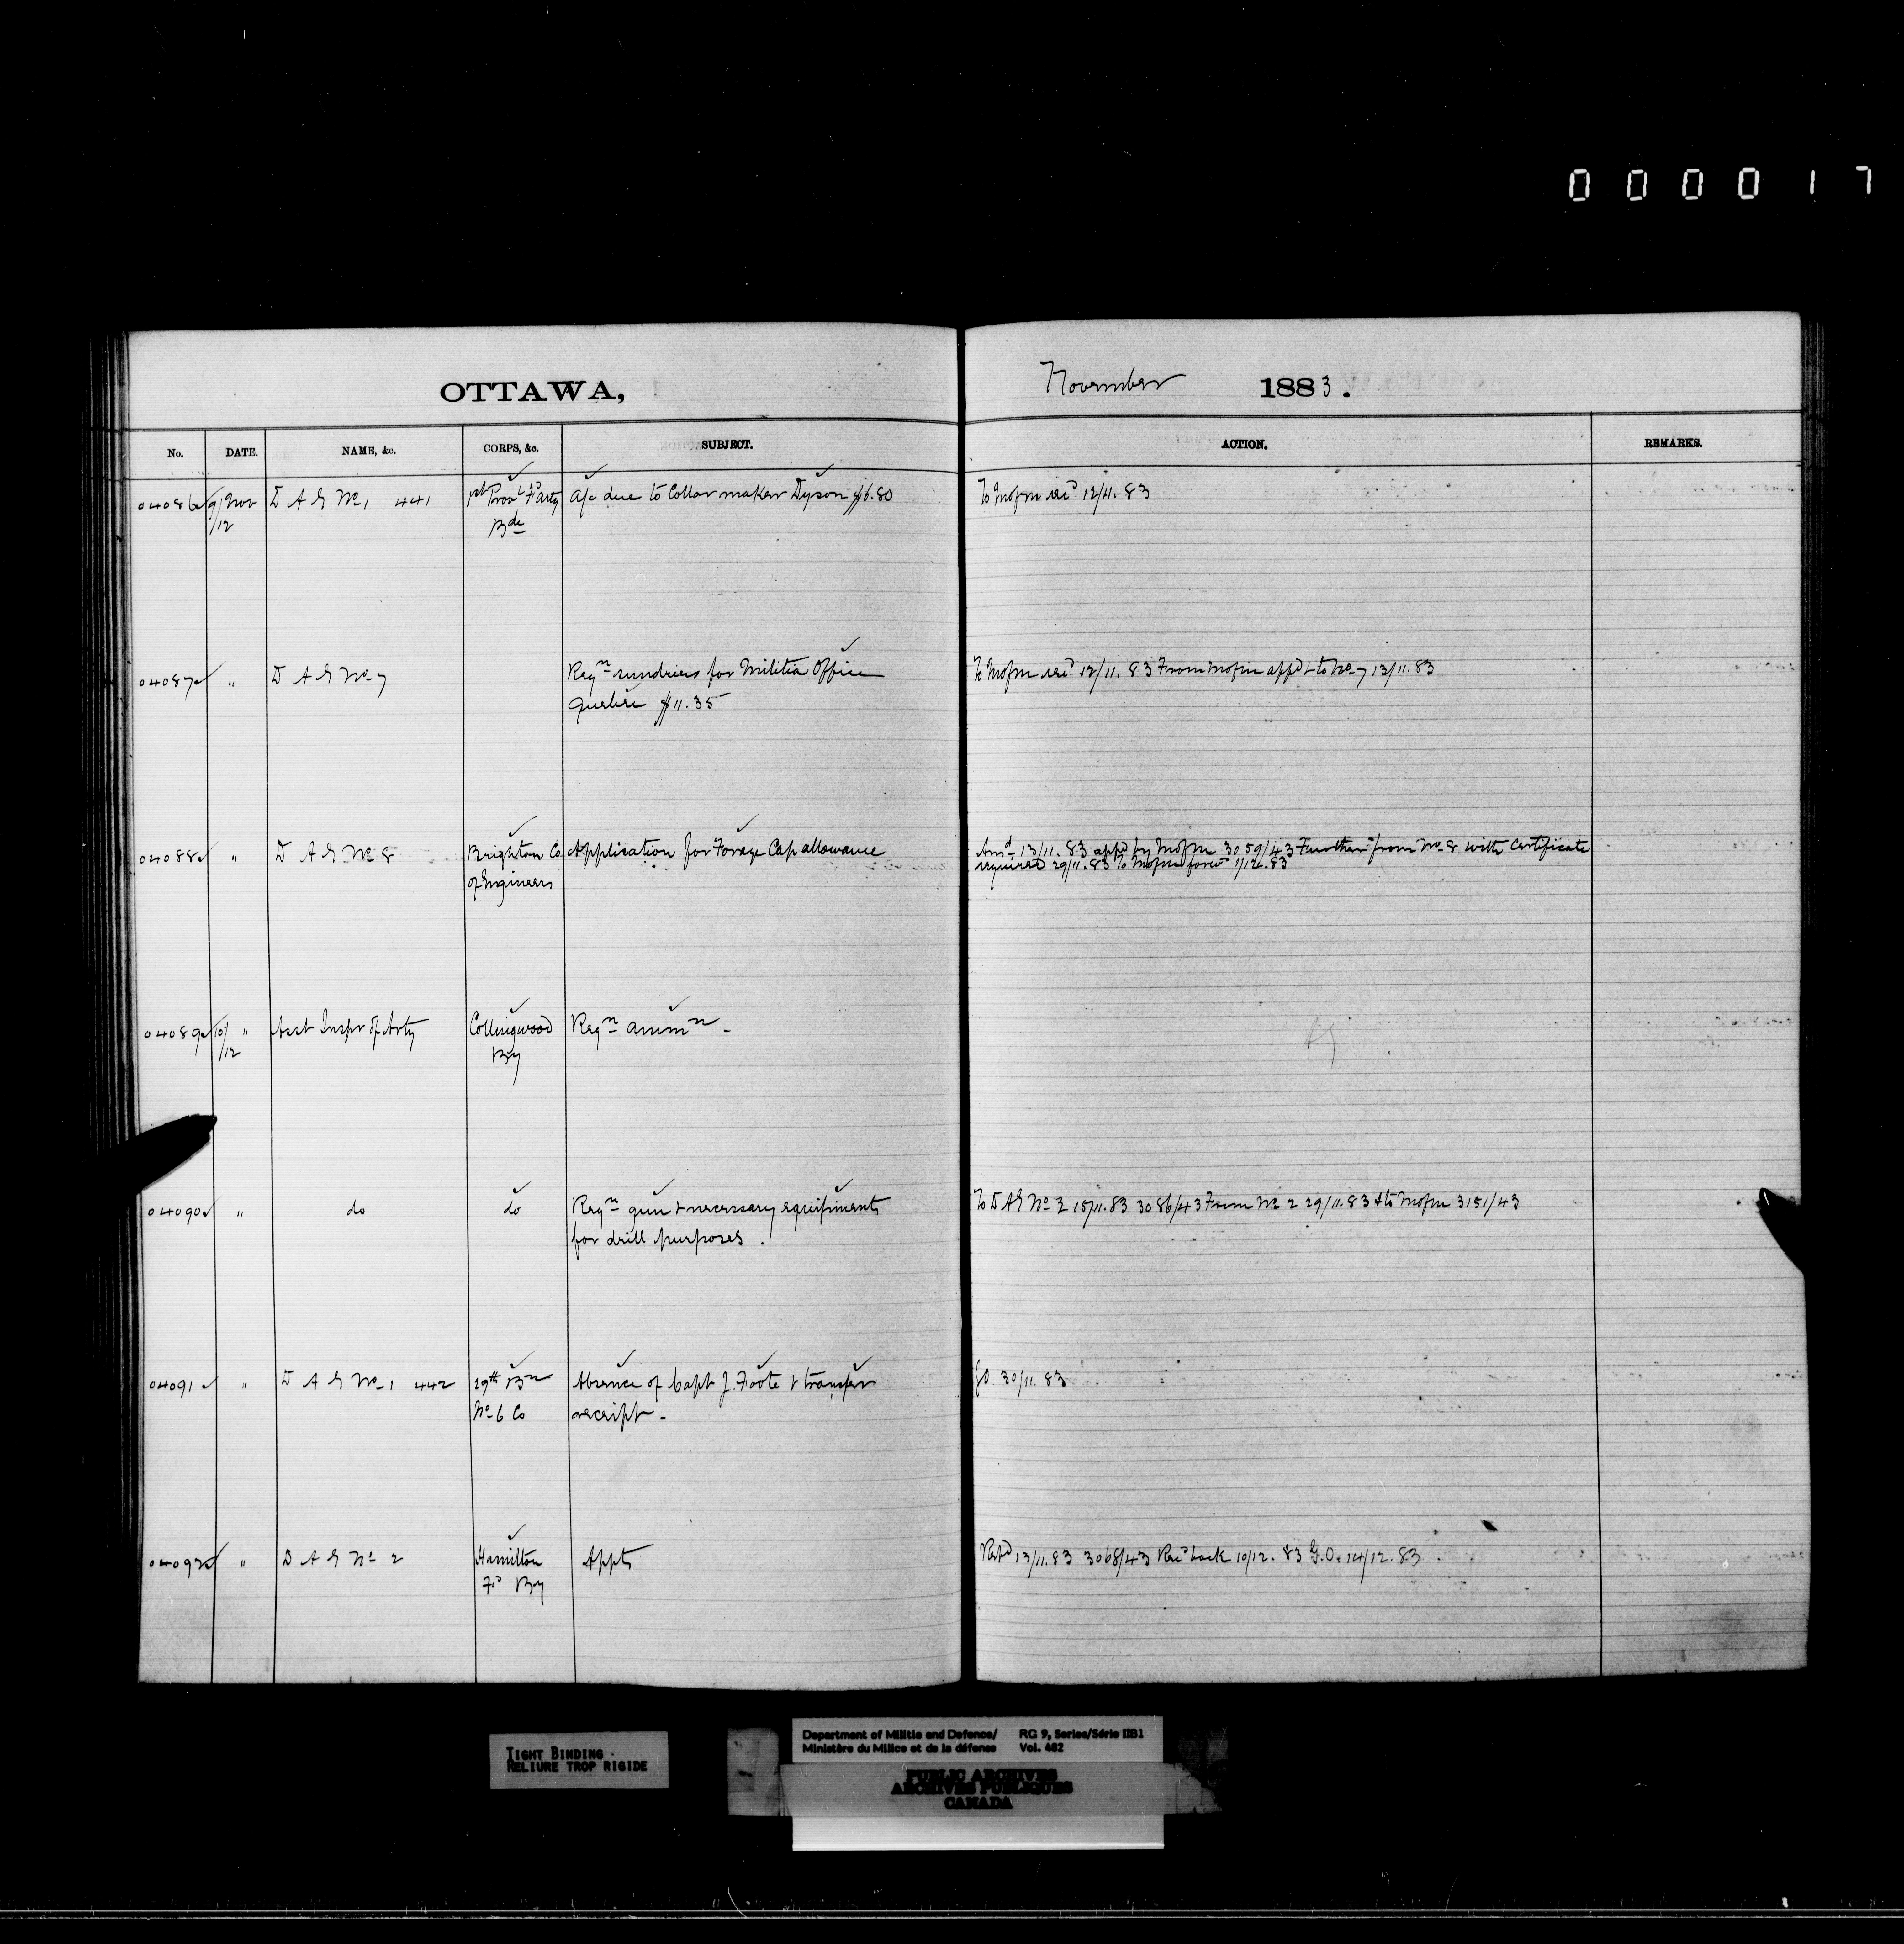 000017
OTTAWA, November 1883.
No. DATE. NAME, &c. CORPS, &c. SUBJECT. ACTION. REMARKS.
04086 9/12 Nov D A G No 1 441 1st Provl Fd Arty a/c due to Collar maker Dyson $6.80 To Mofm recd 12/11.83
Bde
04087 " D A G No 7 Reqn sundries for Militia Office To Mofm recd 12/11.83 From Mofm appd & to No 7 13/11.83
Quebec $11.35
04088 " D A G No 8 Brighton Co Application for Forage Cap allowance Ansd 13/11.83 appd by Mofm 3059/43 Further from No 8 with Certificate
of Engineers required 29/11.83 To Mofm forwd 1/12.83
04089 10/12 " Asst Inspr of Arty Collingwood Reqn Ammn -
By
04090 " do do Reqn gun & necessary equipments To D A G No 2 15/11.83 3086/43 From No 2 29/11.83 & to Mofm 3151/43
for drill purposes.
04091 " D A G No 1 442 29th Bn Absence of Capt J. Foote & transfer GO 30/11.83
No 6 Co receipt -
04092 " D A G No 2 Hamilton Appts Repd 13/11.83 3068/43 Recd back 10/12.83 G.O. 14/12.83
Fd By
TIGHT BINDING
RELIURE TROP RIGIDE
Department of Militia and Defence/ RG 9, Series/Série IIB1
Ministère du Milice et de la défense Vol. 482
PUBLIC ARCHIVES
ARCHIVES PUBLIQUES
CANADA